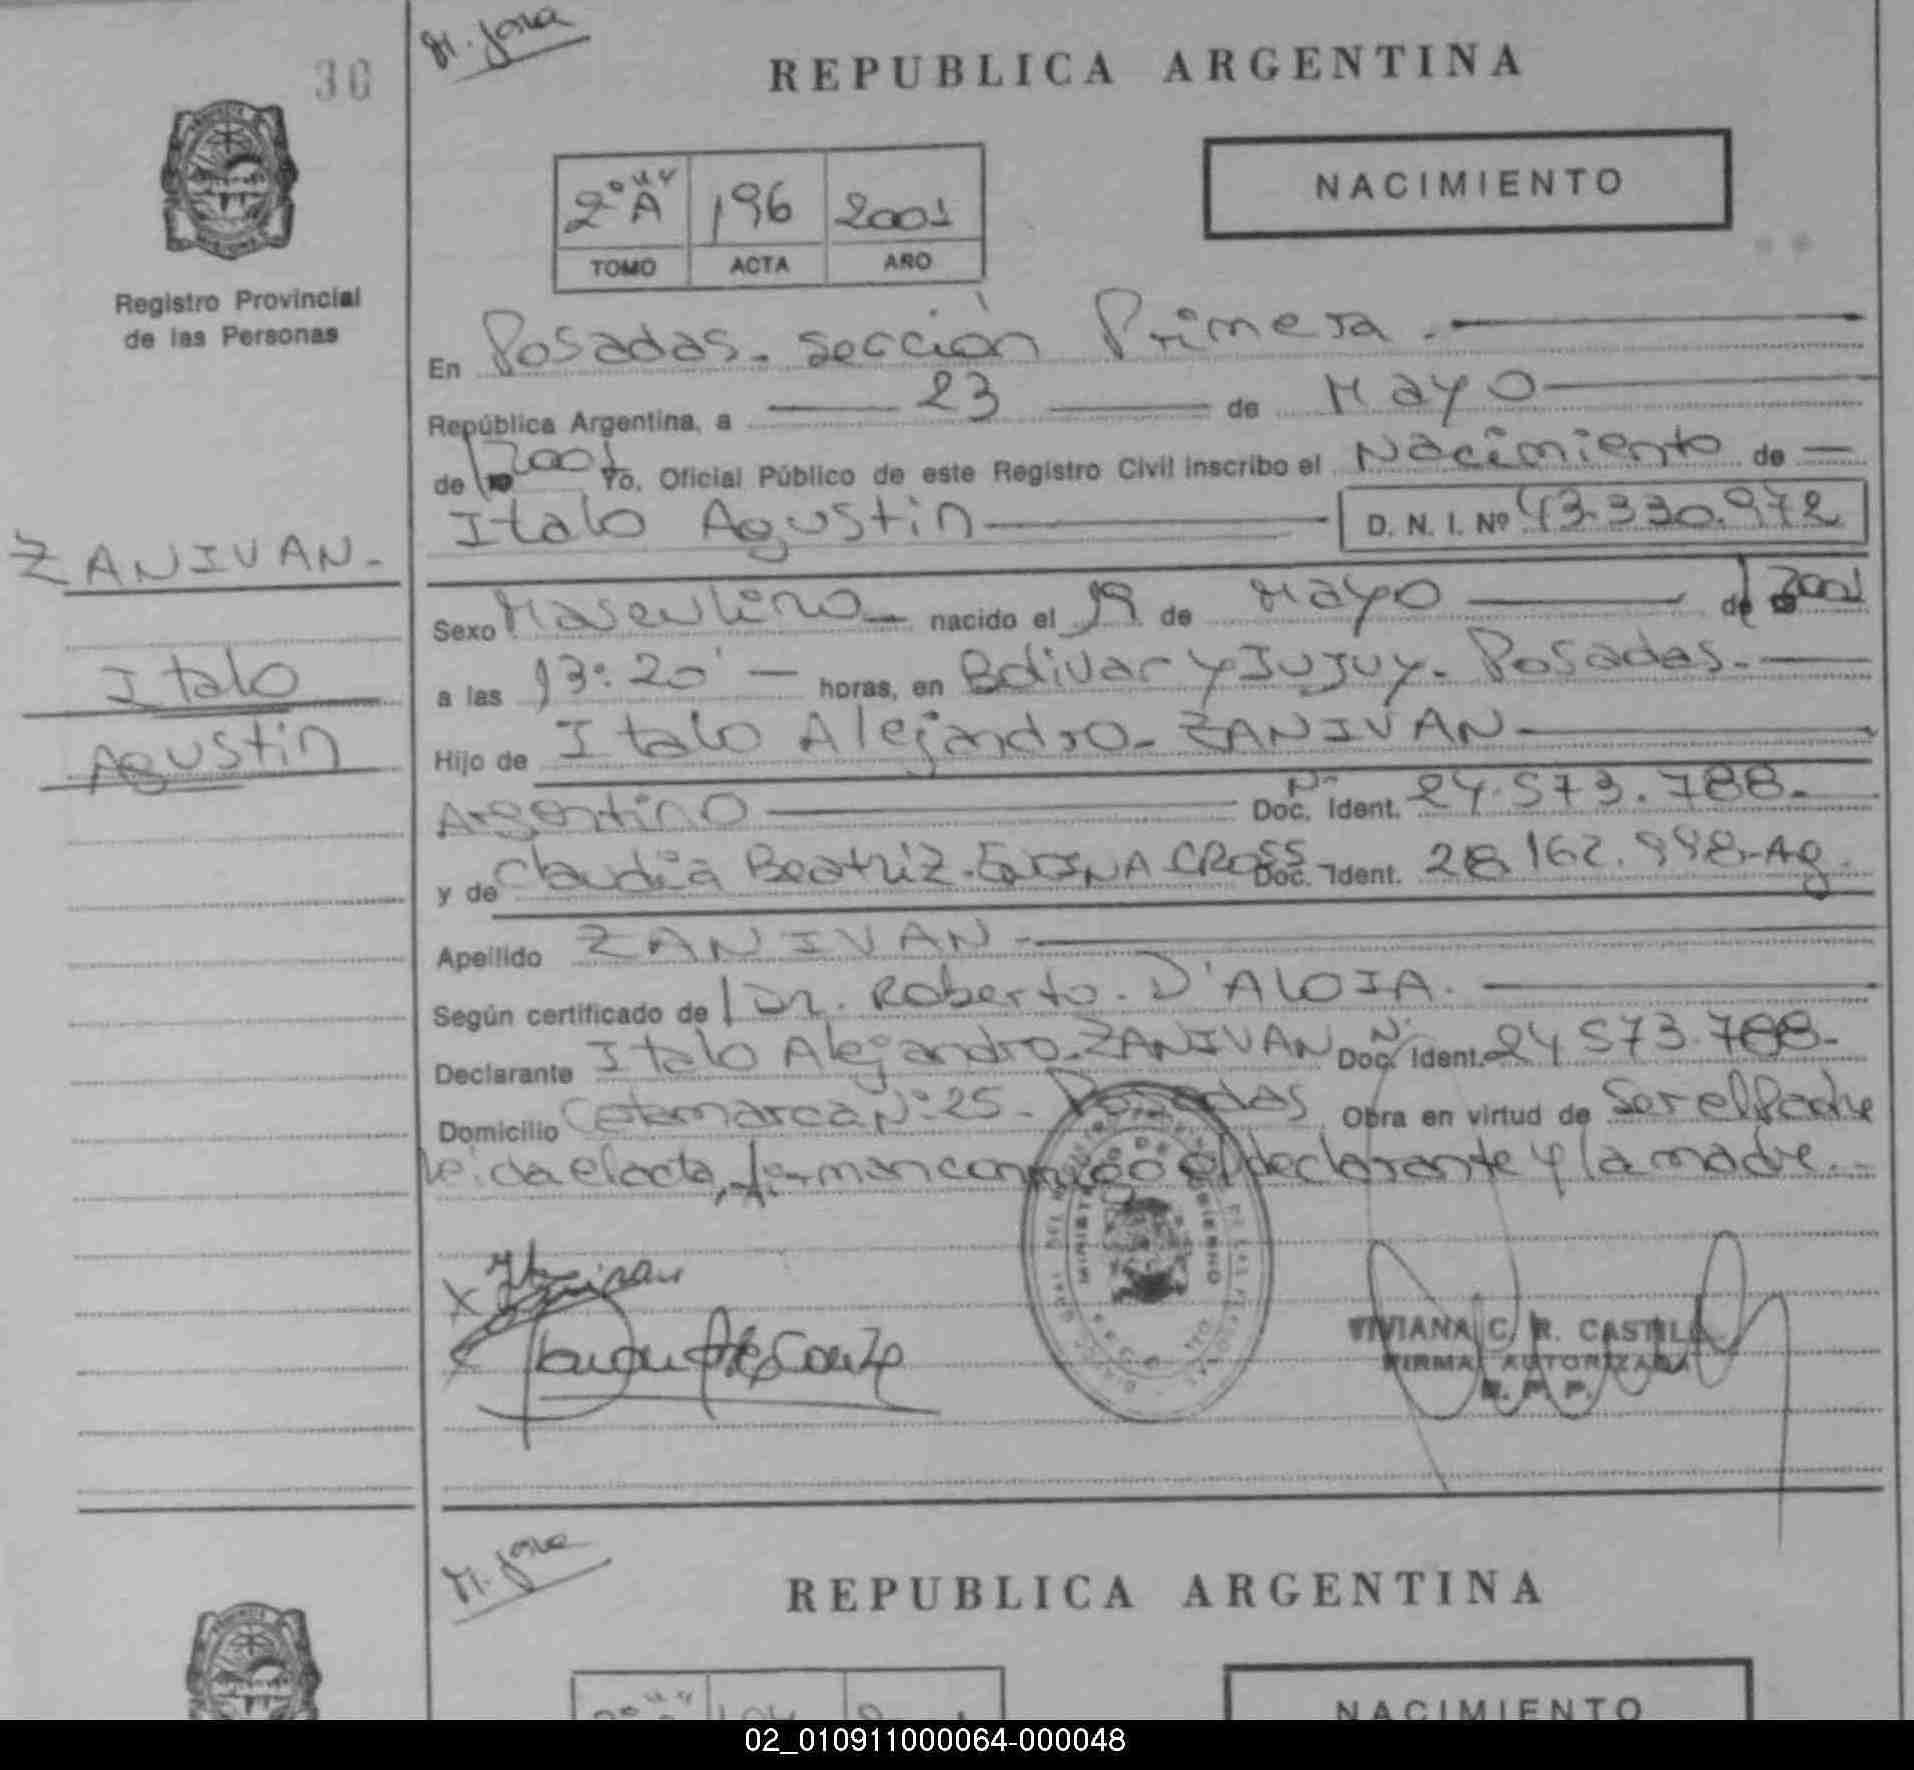 30
M. José
REPUBLICA ARGENTINA
2° "A" 196 2001
TOMO ACTA AÑO
NACIMIENTO
Registro Provincial
de las Personas
En Posadas. sección Primera.
República Argentina, a 23 de Mayo
de 2001 Yo, Oficial Público de este Registro Civil inscribo el Nacimiento de
Italo Agustin D. N. I. Nº 43.330.972
ZANIVAN.
Italo
Agustin
Sexo Masculino nacido el 19 de Mayo de 2001
a las 13:20' horas, en Bolivar y Jujuy. Posadas.
Hijo de Italo Alejandro. ZANIVAN
Argentino Doc. Ident. Nº 24.573.788.
y de Claudia Beatriz. CROSS Doc. Ident. 28.162.998-Ag.
Apellido ZANIVAN
Según certificado de Dr. Roberto. D'ALOIA.
Declarante Italo Alejandro. ZANIVAN Doc. Ident. Nº 24.573.788.
Domicilio Catamarca Nº 25. Posadas Obra en virtud de Ser el Padre
leida el acta, firman conmigo el declarante y la madre.
VIVIANA C. R. CASTILL
FIRMA AUTORIZADA
R. P. P.
M. José
REPUBLICA ARGENTINA
NACIMIENTO
02_010911000064-000048